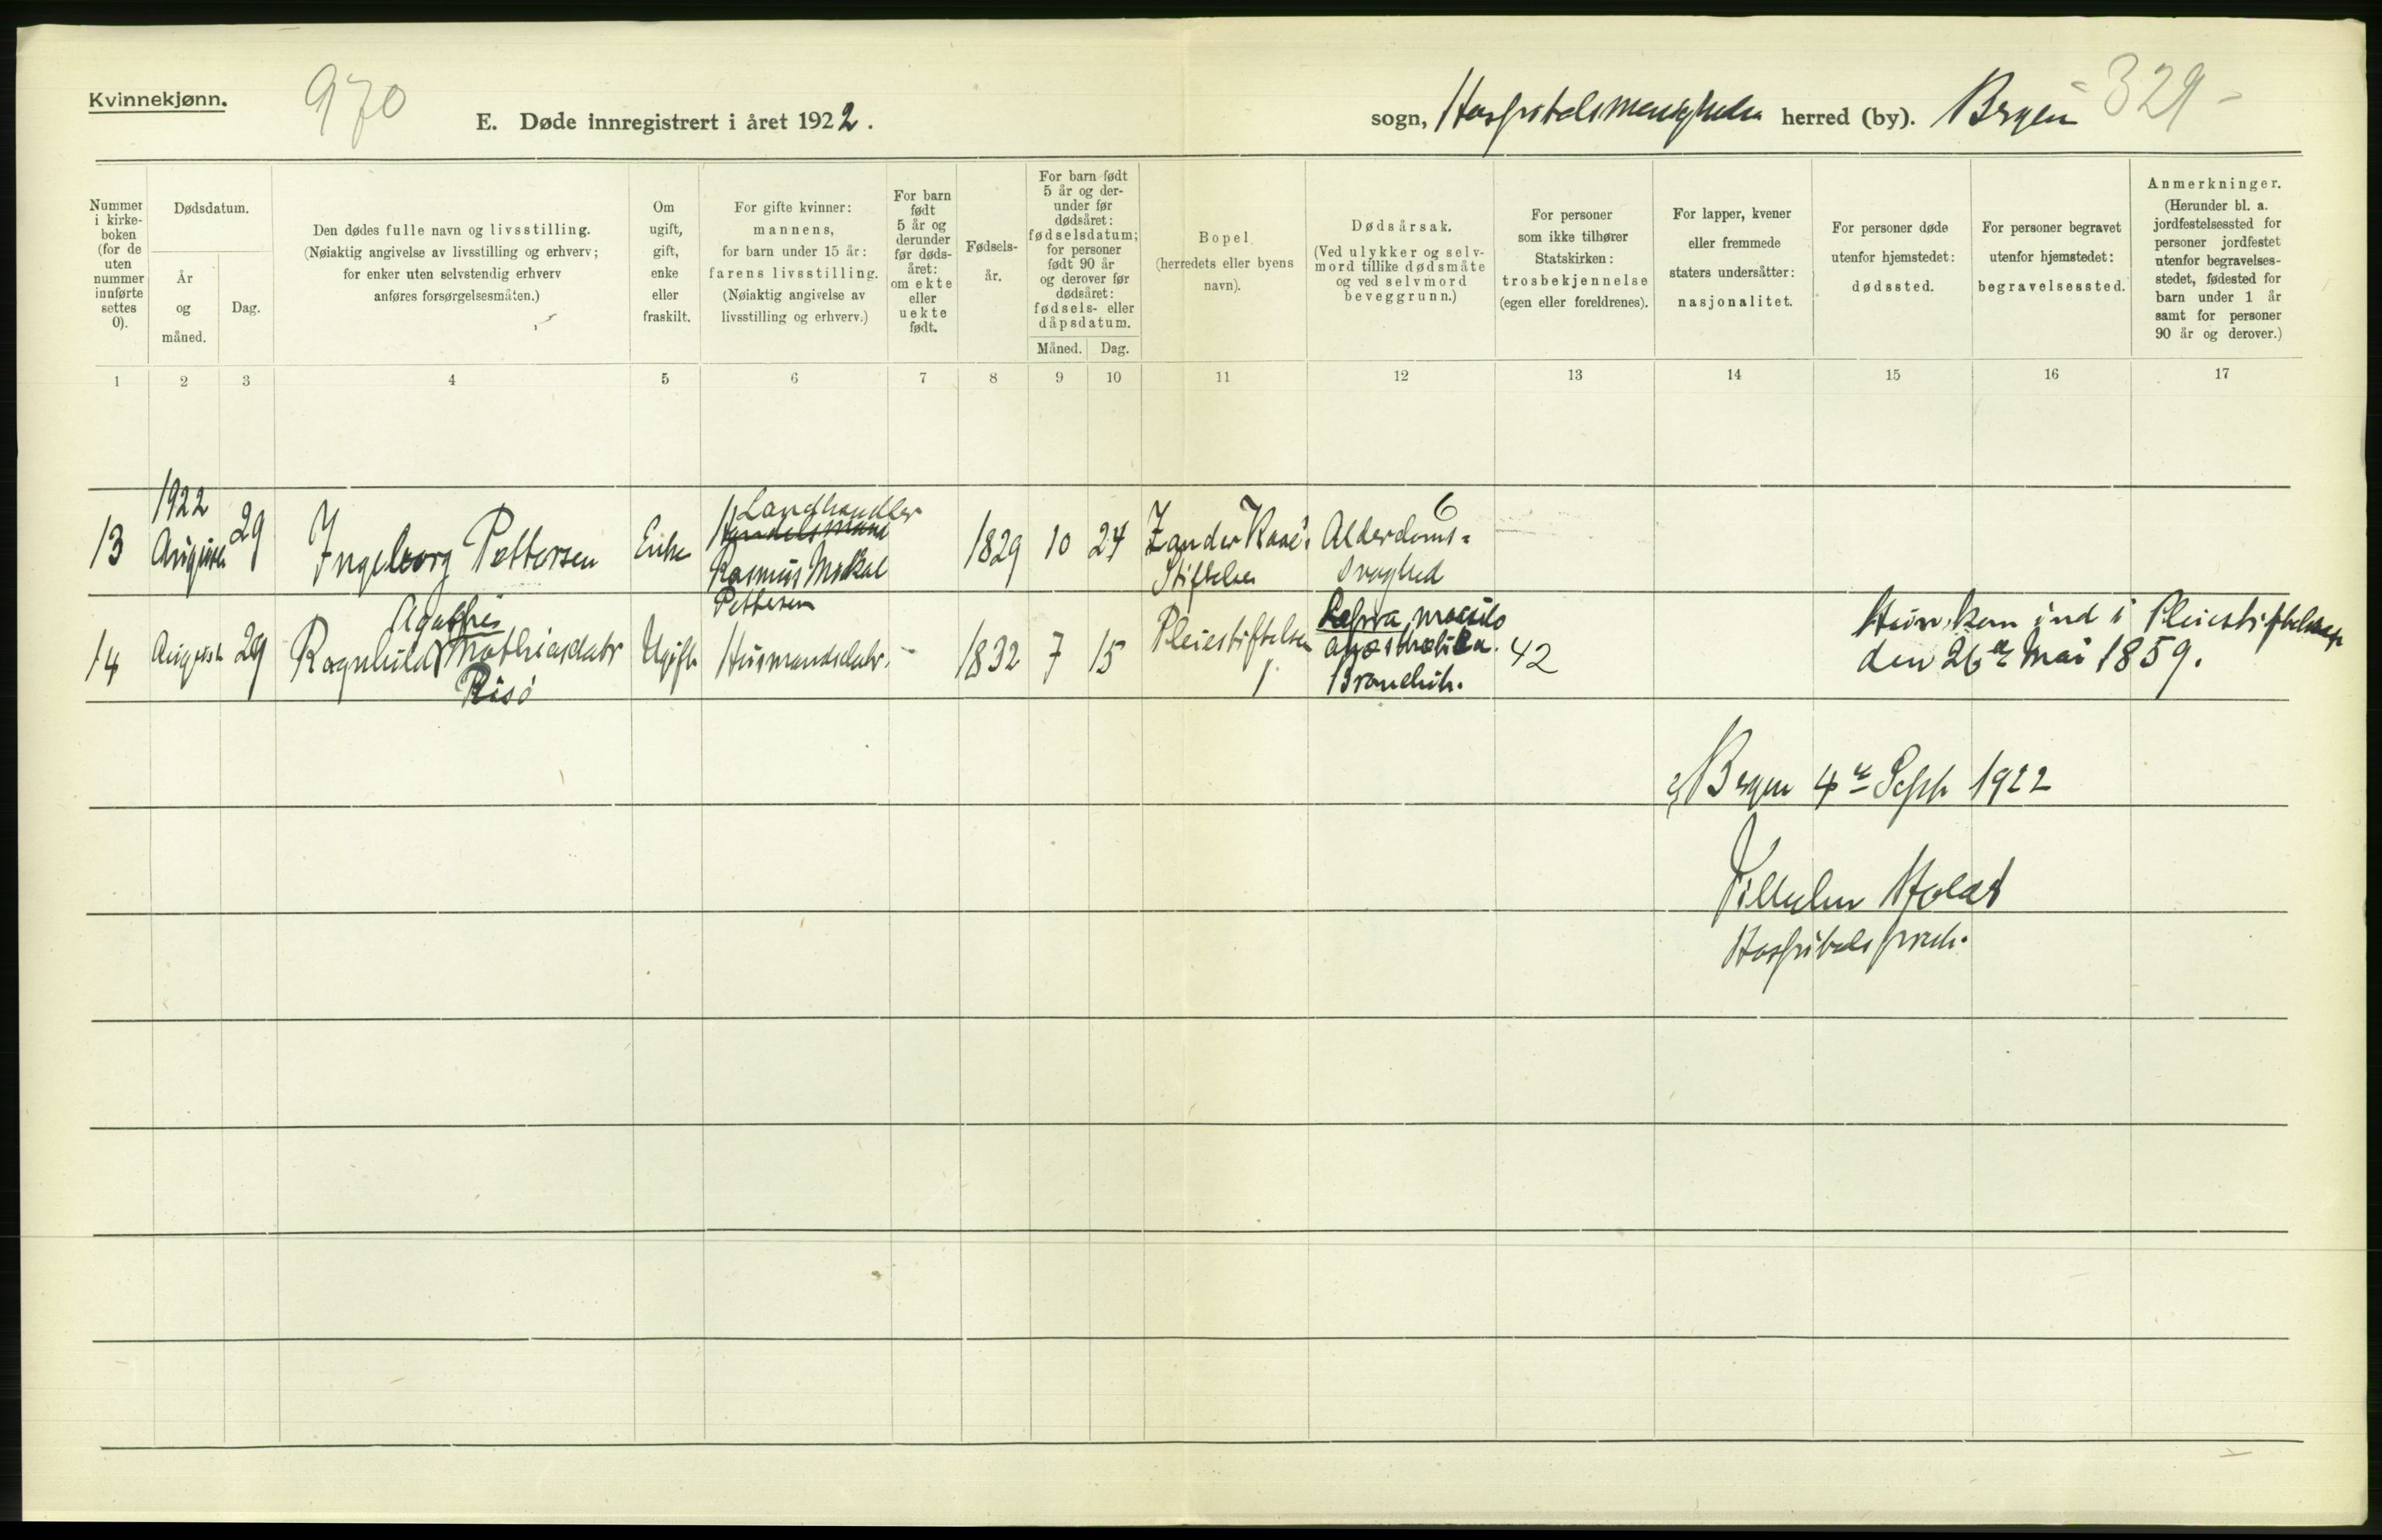 Kvinnekjønn.
970
E. Døde innregistrert i året 1922.
sogn, Hospitalsmenigheden herred (by). Bergen
329
Nummer i kirke-boken (for de uten nummer innførte settes 0).
Dødsdatum.
År og måned.
Dag.
Den dødes fulle navn og livsstilling.
(Nøiaktig angivelse av livsstilling og erhverv;
for enker uten selvstendig erhverv
anføres forsørgelsesmåten.)
Om
ugift,
gift,
enke
eller
fraskilt.
For gifte kvinner:
mannens,
for barn under 15 år:
farens livsstilling.
(Nøiaktig angivelse av
livsstilling og erhverv.)
For barn
født
5 år og
derunder
før døds-
året:
om ekte
eller
uekte
født.
Fødsels-
år.
For barn født
5 år og der-
under før
dødsåret:
fødselsdatum;
for personer
født 90 år
og derover før
dødsåret:
fødsels- eller
dåpsdatum.
Måned. Dag.
Bopel
(herredets eller byens
navn).
Dødsårsak.
(Ved ulykker og selv-
mord tillike dødsmåte
og ved selvmord
beveggrunn.)
For personer
som ikke tilhører
Statskirken:
trosbekjennelse
(egen eller foreldrenes).
For lapper, kvener
eller fremmede
staters undersåtter:
nasjonalitet.
For personer døde
utenfor hjemstedet:
dødssted.
For personer begravet
utenfor hjemstedet:
begravelsessted.
Anmerkninger.
(Herunder bl. a.
jordfestelsessted for
personer jordfestet
utenfor begravelses-
stedet, fødested for
barn under 1 år
samt for personer
90 år og derover.)
1 2 3 4 5 6 7 8 9 10 11 12 13 14 15 16 17
1922
13 August 29 Ingeborg Pettersen Enke
Landhandler
Handelsmand
Rasmus Mikal
Pettersen
1829 10 24
Zander Kaae's
Stiftelse
6
Alderdoms-
svaghed
14 August 29
Agathe
Ragnhild Mathiasdatr
Risö
Ugift Husmandsdatr. - 1832 7 15
Pleiestiftelsen
1
Lepra maculo
anæsthetica.
Bronchit.
42
Hun kom ind i Pleiestiftelsen
den 26de Mai 1859.
Bergen 4de Sept 1922
Vilhelm Holdt
Hospitalsprest.